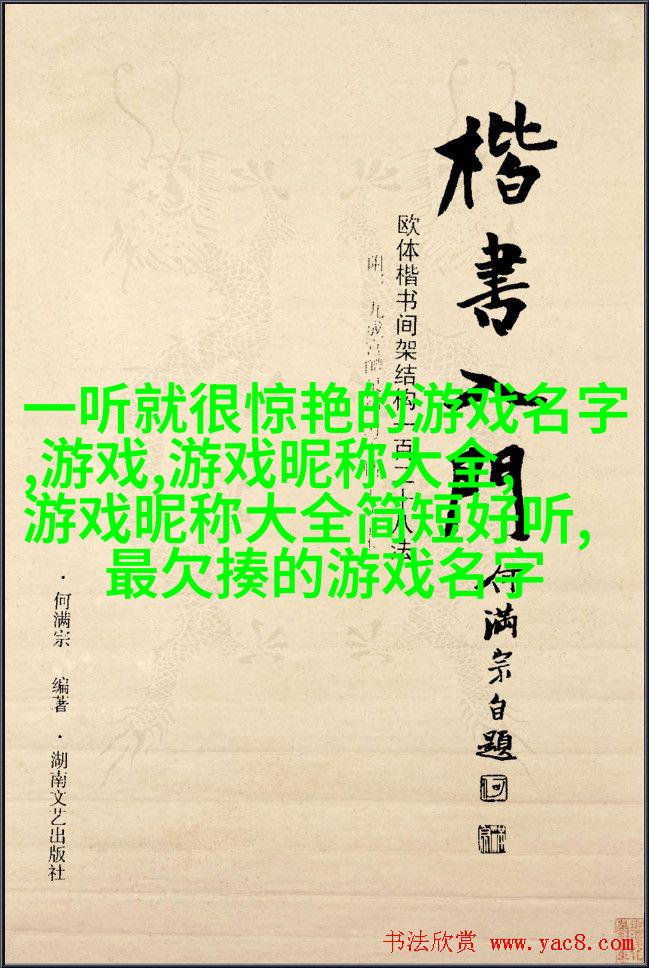 楷書入門
欧体楷书间架结构一百二十八法
何满宗自題
一听就很惊艳的游戏名字
,游戏,游戏昵称大全,
游戏昵称大全简短好听,
最欠揍的游戏名字
·何满宗 编著·湖南文艺出版社
书法欣赏 www.yac8.com